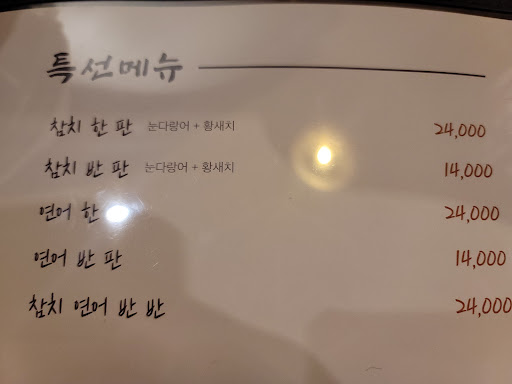 특선메뉴
참치 한 판 눈다랑어 + 황새치 24,000
참치 반 판 눈다랑어 + 황새치 14,000
연어 한 24,000
연어 반 판 14,000
참치 연어 반 반 24,000